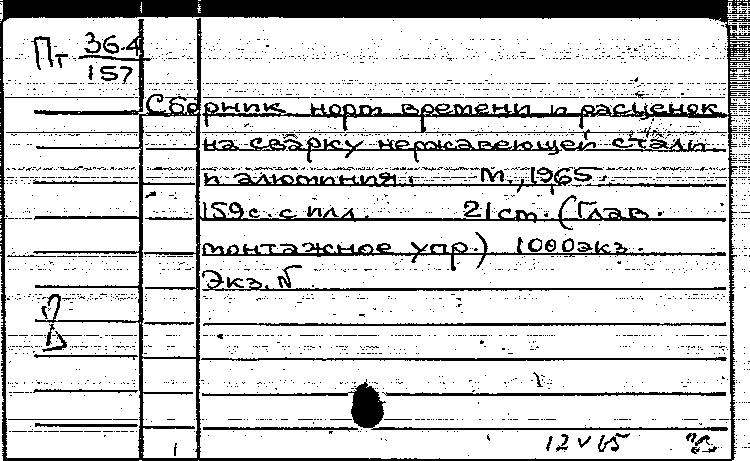 Пт 364
157
Сборник норм времени и расценок
на сварку нержавеющей стали
и алюминия. М., 1965.
159 с. с илл. 21 см. (Глав.
монтажное упр.) 1000 экз.
Экз. N
12 V 65